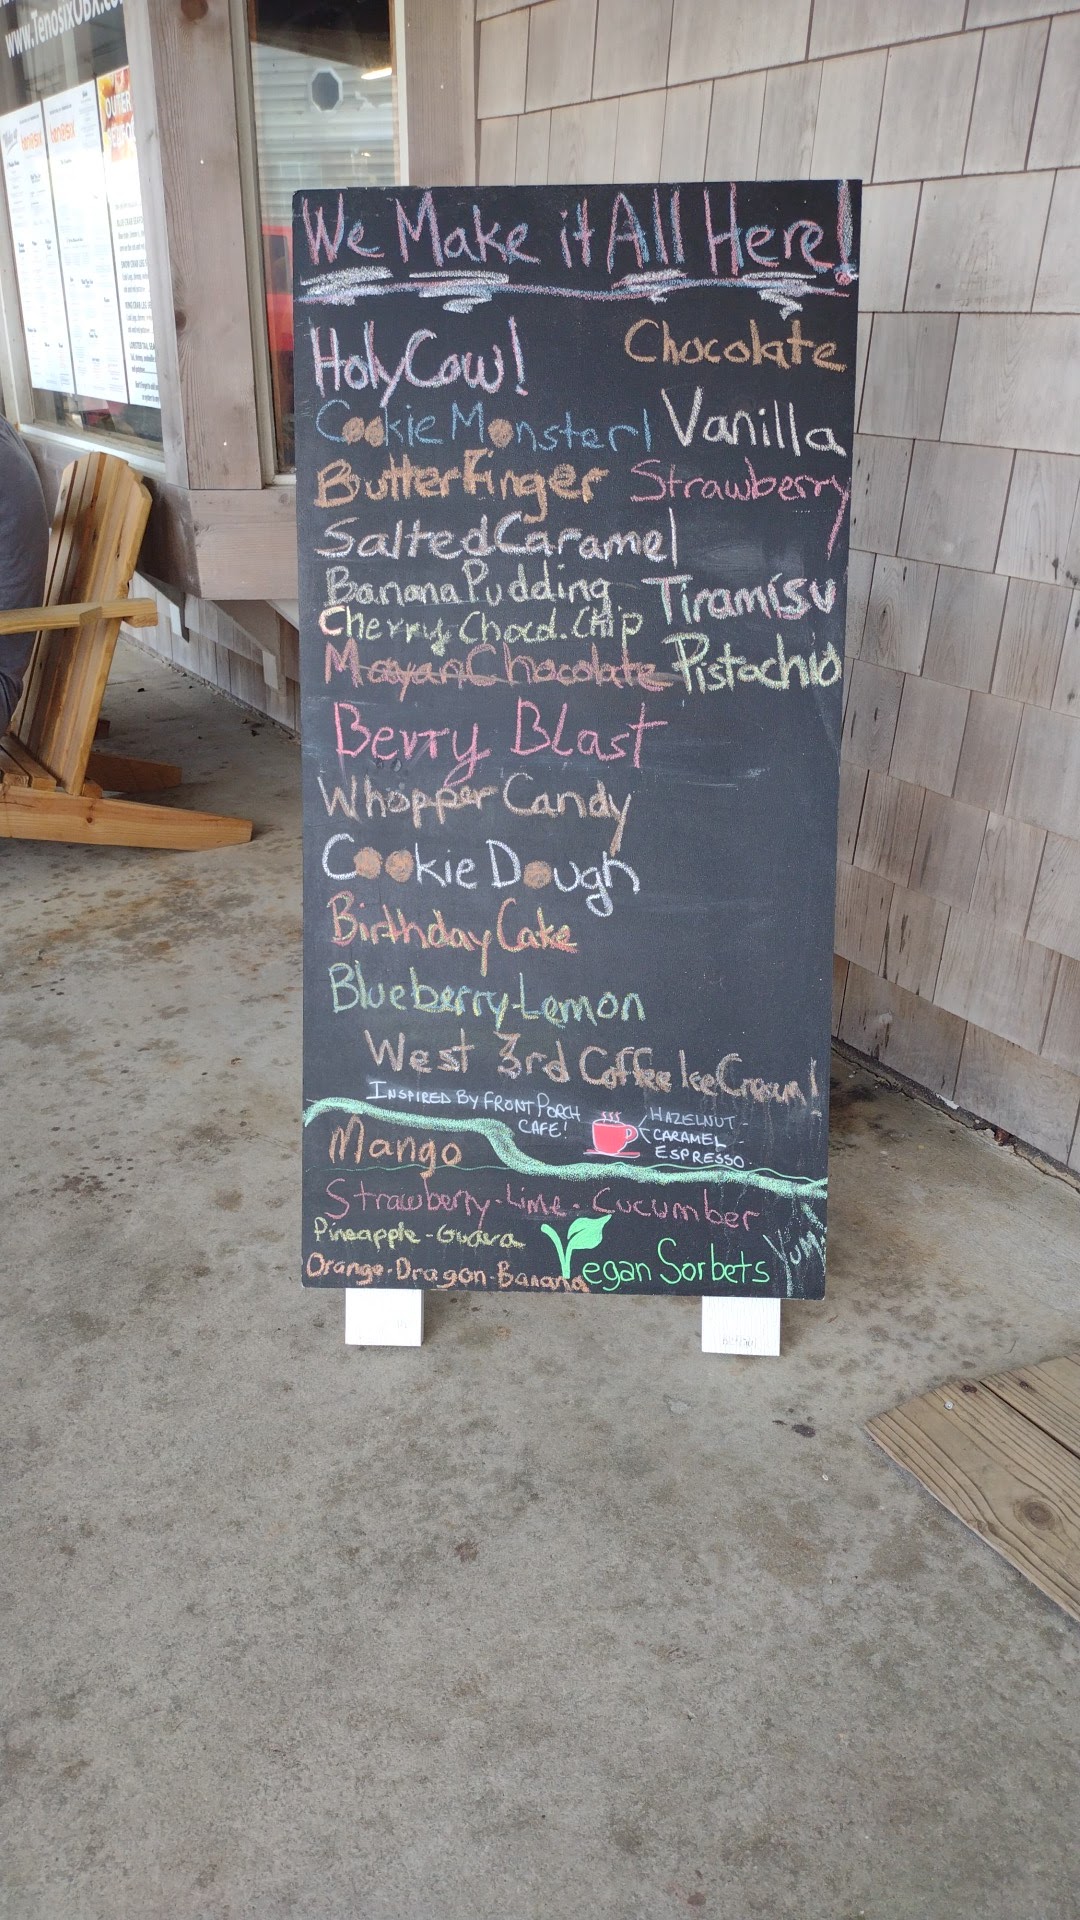 www.TenosixOBX.co
tenosix
tenosix
We Make it All Here!
Holy Cow!
Chocolate
Cookie Monster!
Vanilla
ButterFinger
Strawberry
Salted Caramel
Banana Pudding
Tiramisu
Cherry Chocl. Chip
Mayan Chocolate
Pistachio
Berry Blast
Whopper Candy
Cookie Dough
Birthday Cake
Blueberry-Lemon
West 3rd Coffee Ice Cream!
INSPIRED BY FRONT PORCH
CAFE!
HAZELNUT -
CARAMEL -
ESPRESSO -
Mango
Strawberry-Lime-Cucumber
Pineapple-Guava
Orange-Dragon-Banana
Vegan Sorbets
Yum